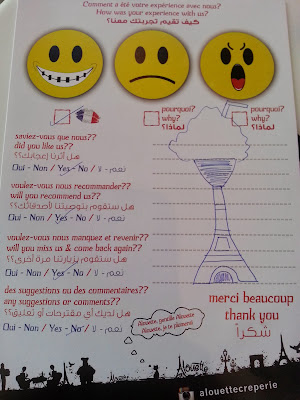 Comment a été votre expérience avec nous?
How was your experience with us?
كيف تقيم تجربتك معنا؟
pourquoi?
why?
لماذا؟
pourquoi?
why?
لماذا؟
saviez-vous que nous??
did you like us??
هل أثرنا إعجابك؟؟
Oui - Non / Yes - No / نعم - لا
voulez-vous nous recommander??
will you recommend us??
هل ستقوم بتوصيتنا لأصدقائك؟؟
Oui - Non / Yes - No / نعم - لا
voulez-vous nous manquez et revenir??
will you miss us & come back again??
هل ستقوم بزيارتنا مرة أخرى؟؟
Oui - Non / Yes - No / نعم - لا
des suggestions ou des commentaires??
any suggestions or comments??
هل لديك أي مقترحات أو تعليق؟؟
Oui - Non / Yes - No / نعم - لا
Alouette, gentille Alouette
Alouette, je te plumerai
merci beaucoup
thank you
شكراً
Alouette
alouettecreperie